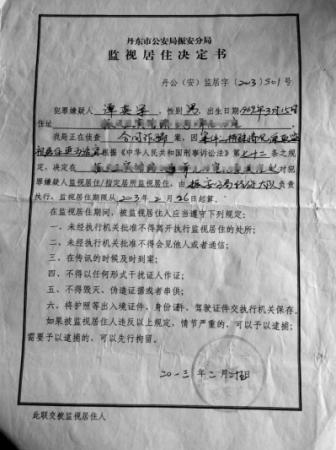 丹东市公安局振安分局
监视居住决定书
丹公(安)监居字〔2013〕501号
犯罪嫌疑人 性别 男 ,出生日期
住址
我局正在侦查 合同诈骗 案,因
根据《中华人民共和国刑事诉讼法》第七十二条之规
定,决定在 对
犯罪嫌疑人监视居住/指定居所监视居住,由 负责
执行,监视居住期限从2013年2月26日起算。
在监视居住期间,被监视居住人应当遵守下列规定:
一、未经执行机关批准不得离开执行监视居住的处所;
二、未经执行机关批准不得会见他人或者通信;
三、在传讯的时候及时到案;
四、不得以任何形式干扰证人作证;
五、不得毁灭、伪造证据或者串供;
六、将护照等出入境证件、身份证件、驾驶证件交执行机关保存。
如果被监视居住人违反以上规定,情节严重的,可以予以逮捕;
需要予以逮捕的,可以先行拘留。
二〇一三年二月 日
此联交被监视居住人